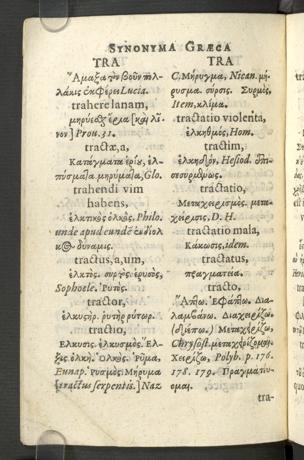 SYNONYMA GRÆCA
TRA
Ἅμαξα τὸν βοῦν πολ-
λάκις ἐκφέρει Lucia.
trahere lanam,
[καὶ λῖ-
νον] Prou. 31.
tractæ, a,
Glo.
trahendi vim
habens,
ἑλκτικὸς ὁλκὸς, Philo.
unde apud eundē
δύναμις.
tractus, a, um,
ἑλκτὸς. συρτὸς. ἐρυσὸς,
Sophocle. Ῥυτὸς.
tractor,
ἑλκυςὴρ. ῥυτὴρ ῥύτωρ.
tractio,
Ἕλκυσις. ἑλκυσμὸς. Ἕλ-
ξις. ὁλκὴ. Ὁλκὸς. Ῥῦμα,
Eunap. Ῥυσμὸς. Μήρυμα
[tractus serpentis.] Naz
TRA
C. Μήρυγμα, Nican. μή-
ρυσμα. σύρσις. Συρμὸς,
Item, κλίμα.
tractatio violenta,
ἑλκηθμὸς, Hom.
tractim,
ἑλκηδὸν, Hesiod. ἐπι-
tractatio,
Μεταχειρισμὸς. μετα-
χείρισις. D. H.
tractatio mala,
Κάκωσις, idem.
tractatus,
πραγματεία.
tracto,
Ἅπτω. Ἐφάπτω. Δια-
λαμβάνω. Διαχειρίζω,
Μεταχειρίζω,
Chrysost. μεταχειρίζομαι.
Χειρίζω, Polyb. p. 176.
178. 179. Πραγματεύ-
ομαι.
tra-